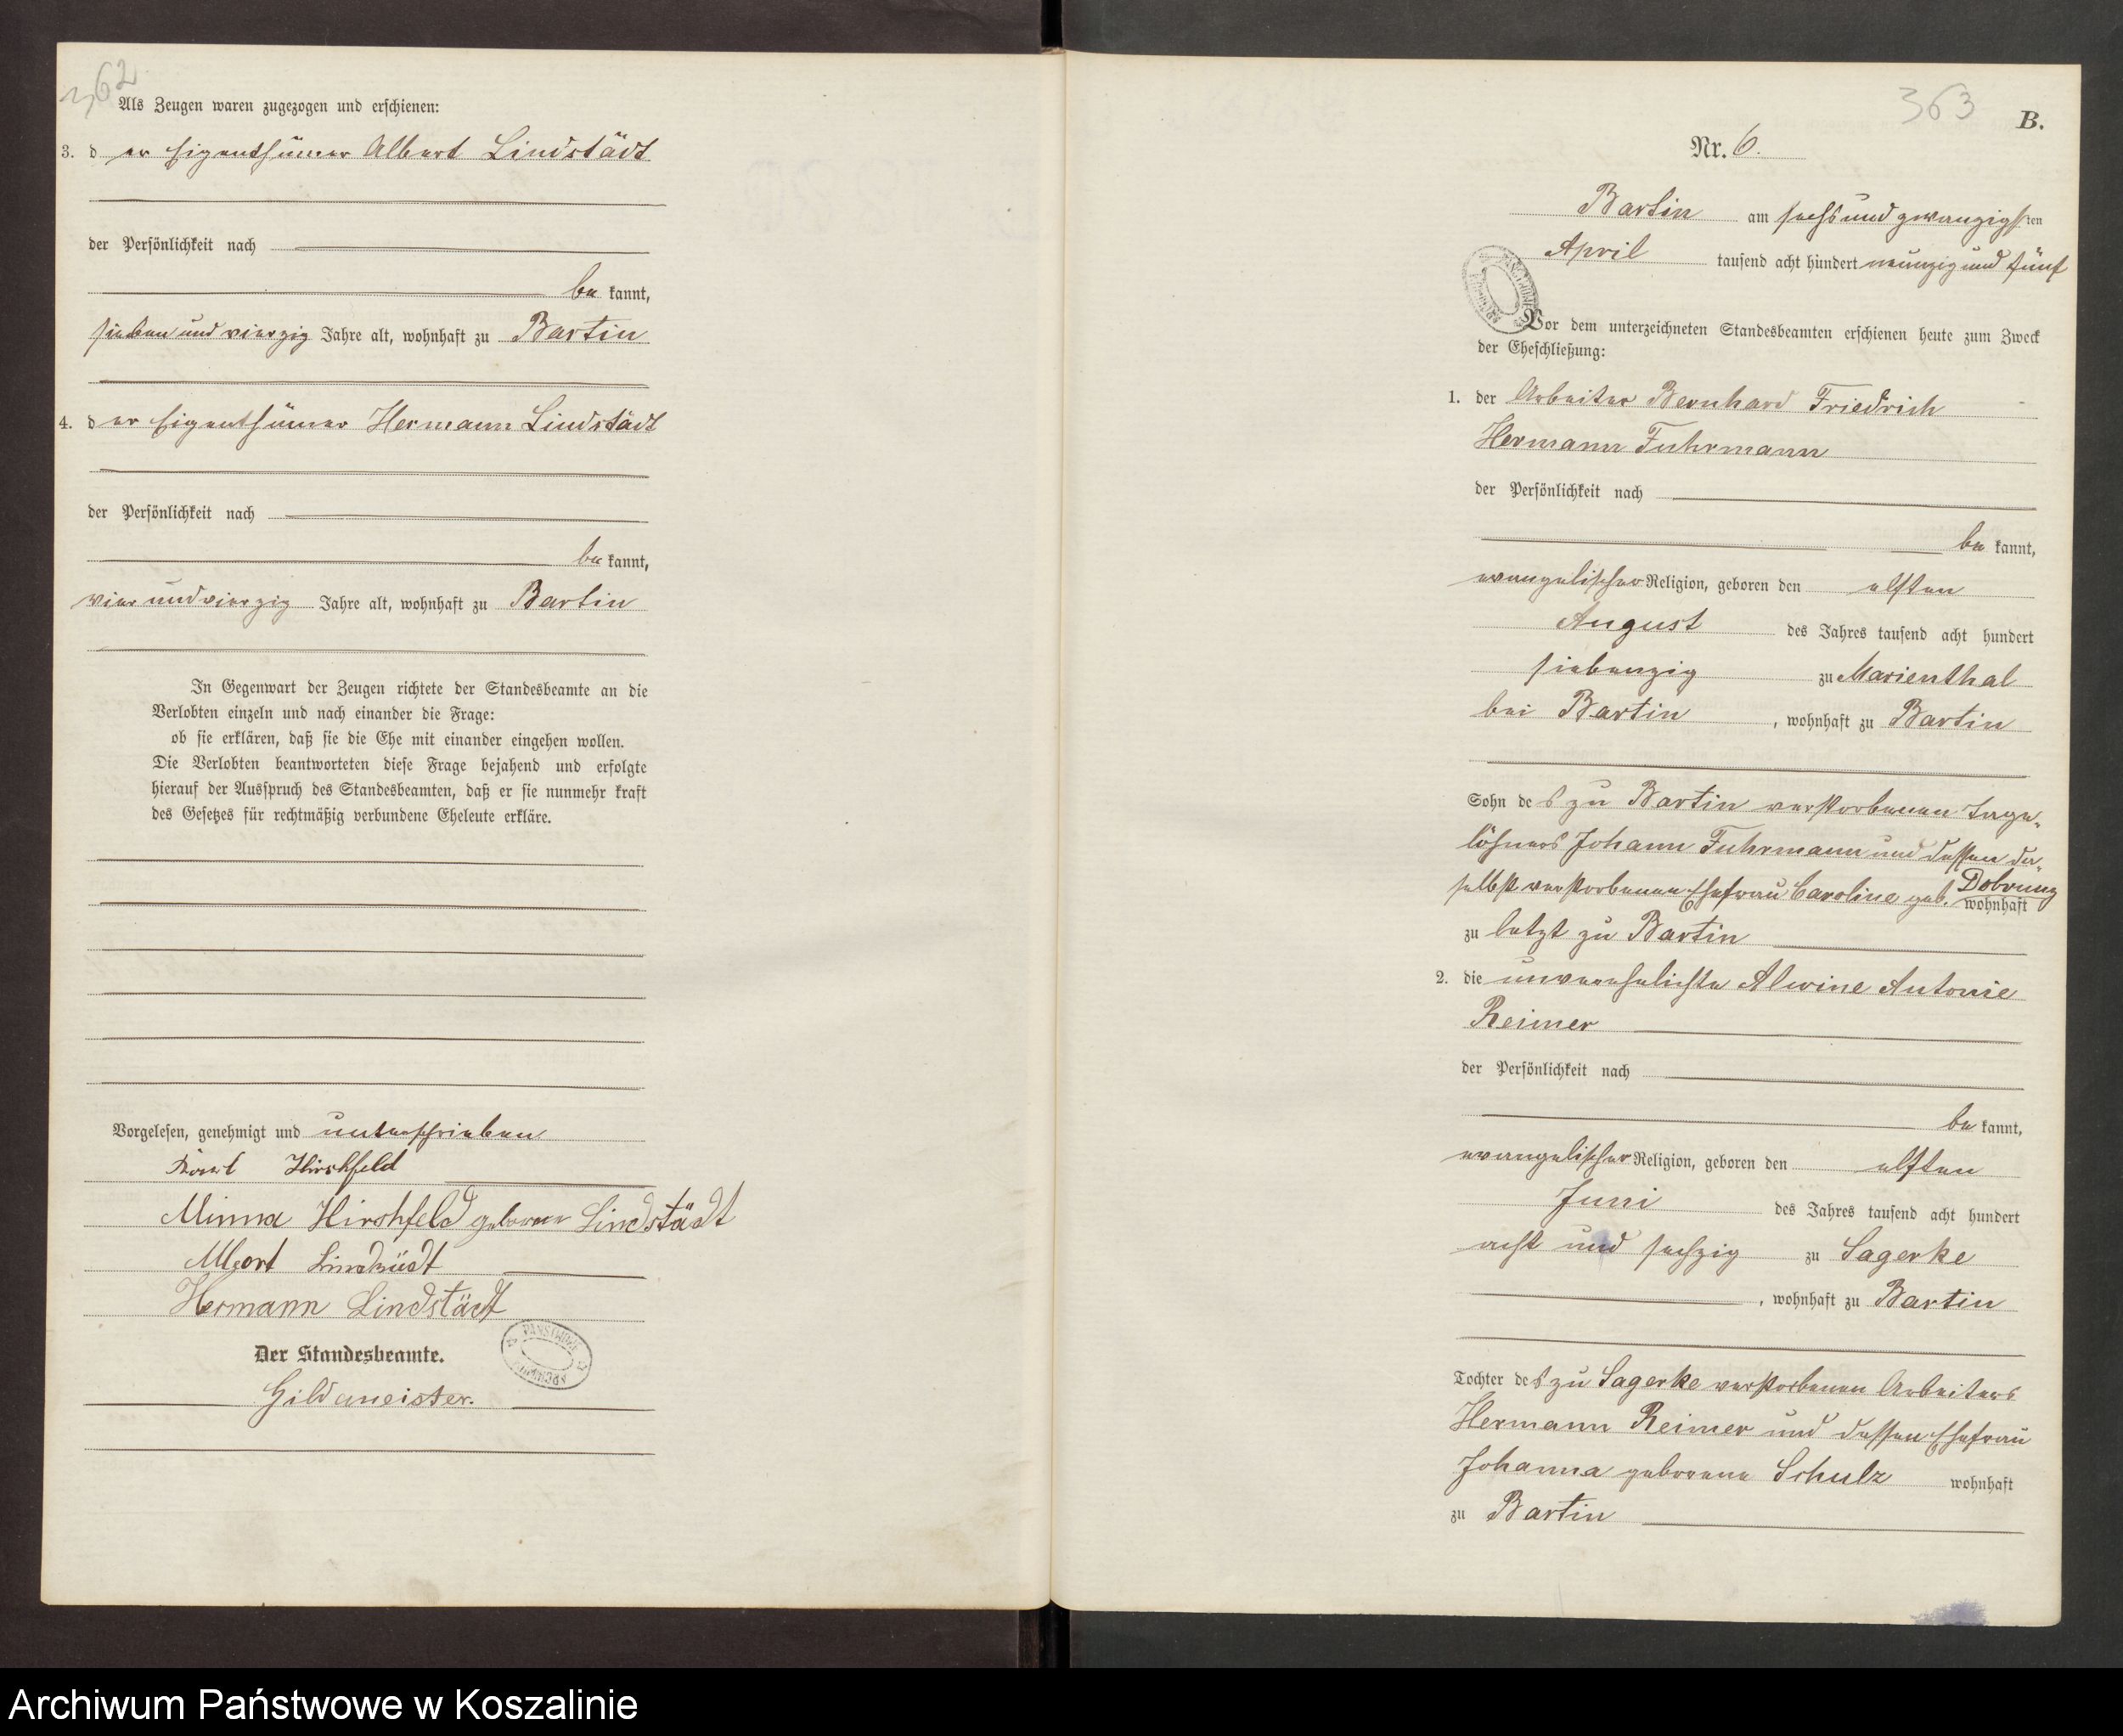 362
Als Zeugen waren zugezogen und erschienen:
3. der Eigenthümer Albert Lindstädt
der Persönlichkeit nach
be kannt,
sieben und vierzig Jahre alt, wohnhaft zu Bartin
4. der Eigenthümer Hermann Lindstädt
der Persönlichkeit nach
be kannt,
vier und vierzig Jahre alt, wohnhaft zu Bartin
In Gegenwart der Zeugen richtete der Standesbeamte an die
Verlobten einzeln und nach einander die Frage:
ob sie erklären, daß sie die Ehe mit einander eingehen wollen.
Die Verlobten beantworteten diese Frage bejahend und erfolgte
hierauf der Ausspruch des Standesbeamten, daß er sie nunmehr kraft
des Gesetzes für rechtmäßig verbundene Eheleute erkläre.
Vorgelesen, genehmigt und unterschrieben
Hirschfeld
Minna Hirshfeld geborene Lindstädt
Albert Lindstädt
Hermann Lindstädt
Der Standesbeamte.
Gildemeister.
363
B.
Nr. 6.
Bartin am sechs und zwanzigsten
April tausend acht hundert neunzig und fünf
Vor dem unterzeichneten Standesbeamten erschienen heute zum Zweck
der Eheschließung:
1. der Arbeiter Bernhard Friedrich
Hermann Fuhrmann
der Persönlichkeit nach
be kannt,
evangelischer Religion, geboren den elften
August des Jahres tausend acht hundert
siebenzig zu Marienthal
bei Bartin, wohnhaft zu Bartin
Sohn des zu Bartin verstorbenen Tage-
löhners Johann Fuhrmann und dessen da-
selbst verstorbenen Ehefrau Caroline geb. Dobrunz
wohnhaft
zu letzt zu Bartin
2. die unverehelichte Alwine Antonie
Reimer
der Persönlichkeit nach
be kannt,
evangelischer Religion, geboren den elften
Juni des Jahres tausend acht hundert
acht und sechzig zu Sagerke
, wohnhaft zu Bartin
Tochter des zu Sagerke verstorbenen Arbeiters
Hermann Reimer und dessen Ehefrau
Johanna geborene Schulz wohnhaft
zu Bartin
Archiwum Państwowe w Koszalinie